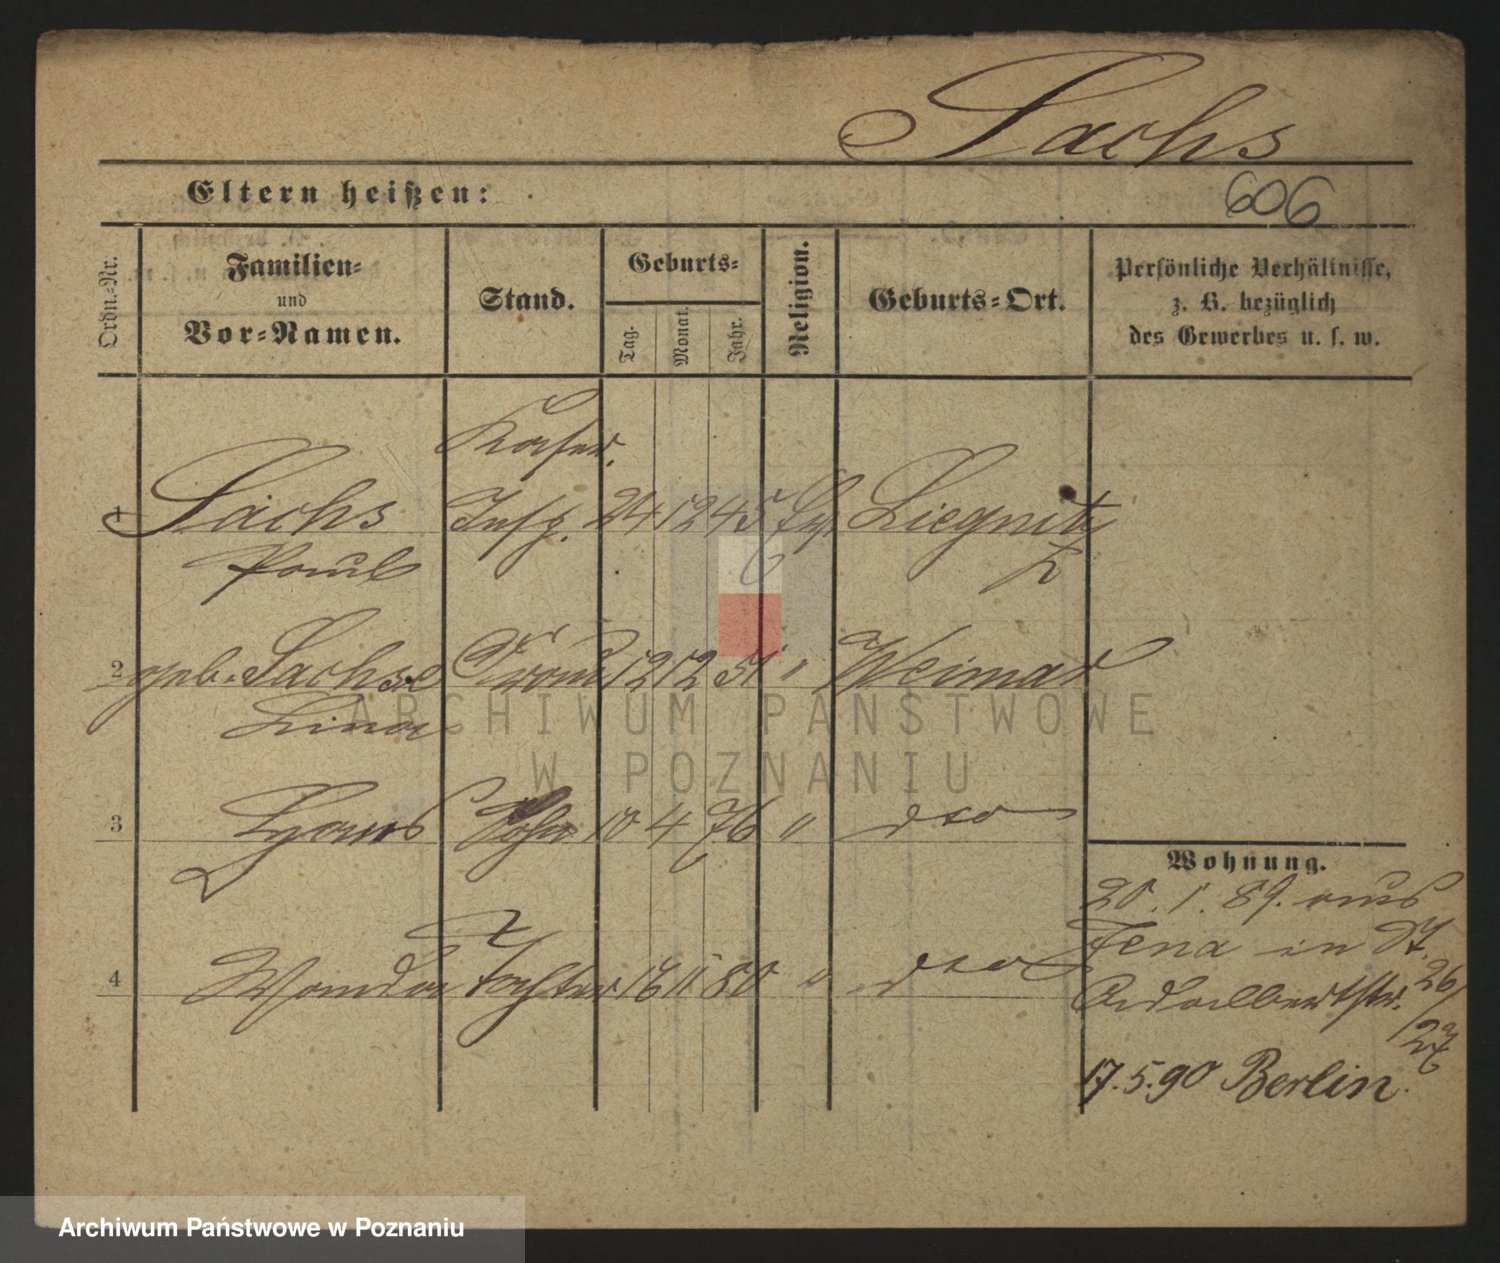 Sachs
Eltern heißen:
606
Ordn.-Nr.
Familien-
und
Vor-Namen.
Stand.
Geburts-
Tag.
Monat.
Jahr.
Religion.
Geburts-Ort.
Persönliche Verhältnisse,
z. B. bezüglich
des Gewerbes u. s. w.
Kasern.
1 Sachs Insp. 24 12 45 Ev. Liegnitz
Paul
2 geb. Sachse Frau 12 12 51 " Weimar
Lina
3 Hans Sohn 10 4 76 " dto
4 Wanda Tochter 16 11 80 " dto
Wohnung.
20. 1. 89. aus
Jena in St.
Adalbertstr. 26/
27
17. 5. 90 Berlin.
ARCHIWUM PAŃSTWOWE
W POZNANIU
Archiwum Państwowe w Poznaniu